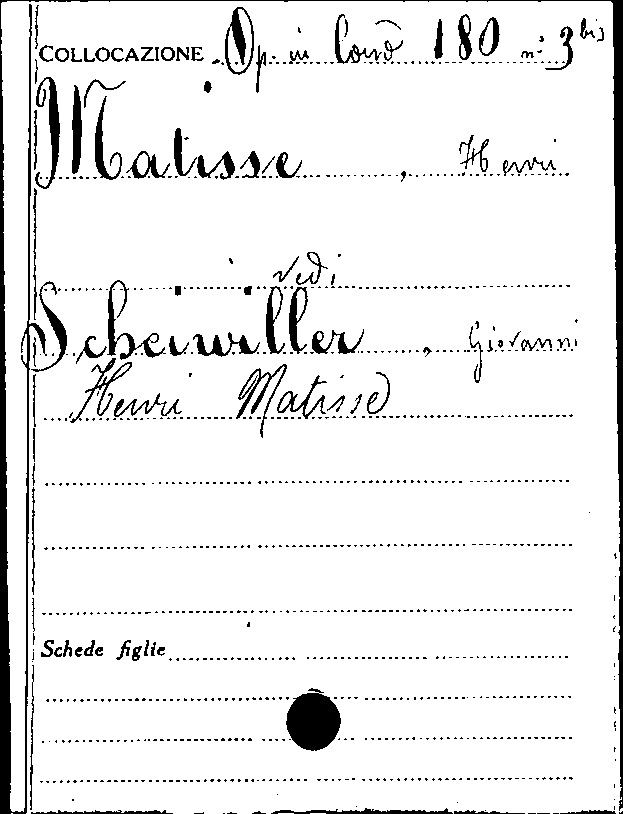 COLLOCAZIONE Op. in Cons 180 n.° 3 bis
Matisse, Henri
vedi
Scheiwiller, Giovanni
Henri Matisse
Schede figlie